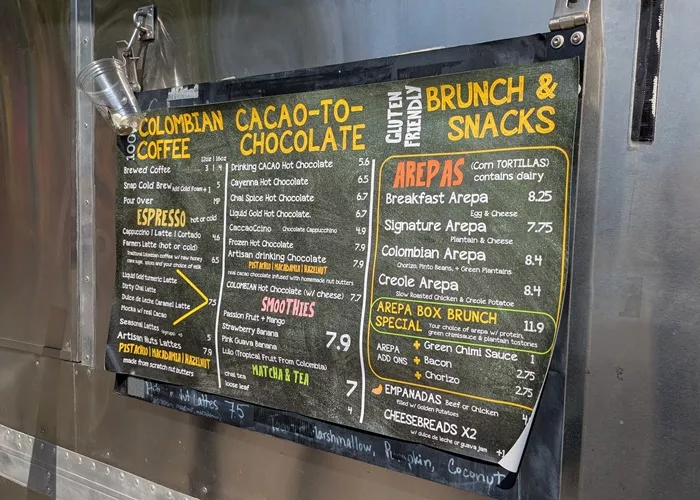 100%
COLOMBIAN
COFFEE
12oz | 16oz
Brewed Coffee 3 | 4
Snap Cold Brew add Cold Foam + 1 5
Pour Over MP
ESPRESSO hot or cold
Cappuccino | Latte | Cortado 4.6
Farmers Latte (hot or cold) 6.5
Traditional Colombian coffee w/ raw honey
cane sugar, spices and your choice of milk
Liquid Gold turmeric Latte
Dirty Chai Latte
Dulce de Leche Caramel Latte 7.5
Mocha w/ real Cacao
Seasonal Lattes 5
Artisan Nuts Lattes 7.9
PISTACHIO | MACADAMIA | HAZELNUT
made from scratch nut butters
CACAO-TO-
CHOCOLATE
Drinking CACAO Hot Chocolate 5.6
Cayenna Hot Chocolate 6.5
Chai Spice Hot Chocolate 6.7
Liquid Gold Hot Chocolate. 6.7
CaccaoCcino Chocolate Cappuccino 4.9
Frozen Hot Chocolate 7.9
Artisan drinking Chocolate 7.9
PISTACHIO | MACADAMIA | HAZELNUT
real cacao chocolate infused with homemade nut butters
COLOMBIAN Hot Chocolate (w/ cheese) 7.7
SMOOTHIES
Passion Fruit + Mango
Strawberry Banana
Pink Guava Banana 7.9
Lulo (Tropical Fruit From Colombia)
MATCHA & TEA
chai tea 7
loose leaf 4
GLUTEN
FRIENDLY
BRUNCH &
SNACKS
AREPAS (Corn TORTILLAS)
contains dairy
Breakfast Arepa 8.25
Egg & Cheese
Signature Arepa 7.75
Plantain & Cheese
Colombian Arepa 8.4
Chorizo, Pinto Beans, + Green Plantains
Creole Arepa 8.4
Slow Roasted Chicken & Creole Potatoe
AREPA BOX BRUNCH
SPECIAL Your choice of arepa w/ protein,
green chimisauce & plantain tostones 11.9
AREPA
ADD ONS
+ Green Chimi Sauce 1
+ Bacon 2.75
+ Chorizo 2.75
EMPANADAS Beef or Chicken 4
filled w/ Golden Potatoes
CHEESEBREADS X2
w/ dulce de leche or guava jam +1
Lattes 7.5
Marshmallow, Pumpkin, Coconut